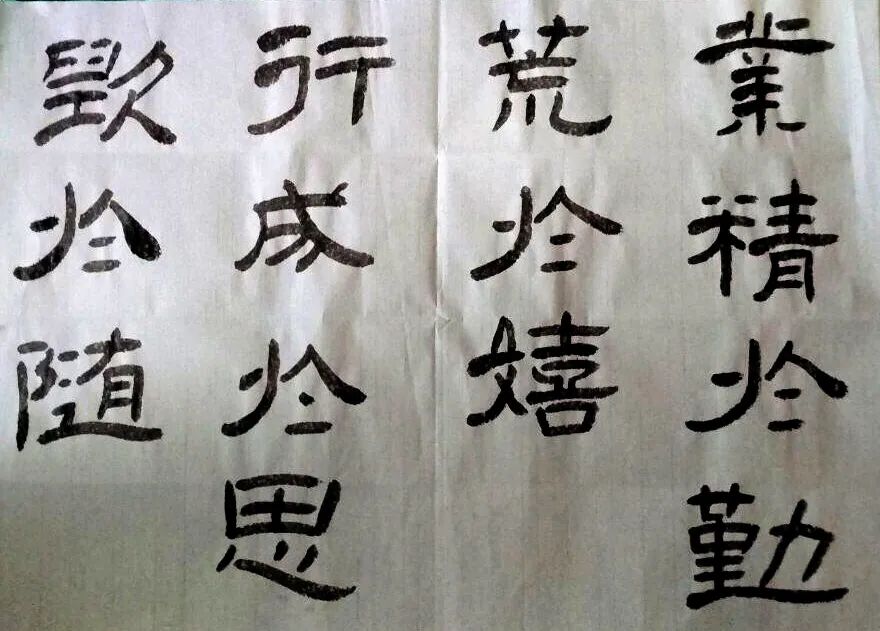 業精於勤
荒於嬉
行成於思
毀於随